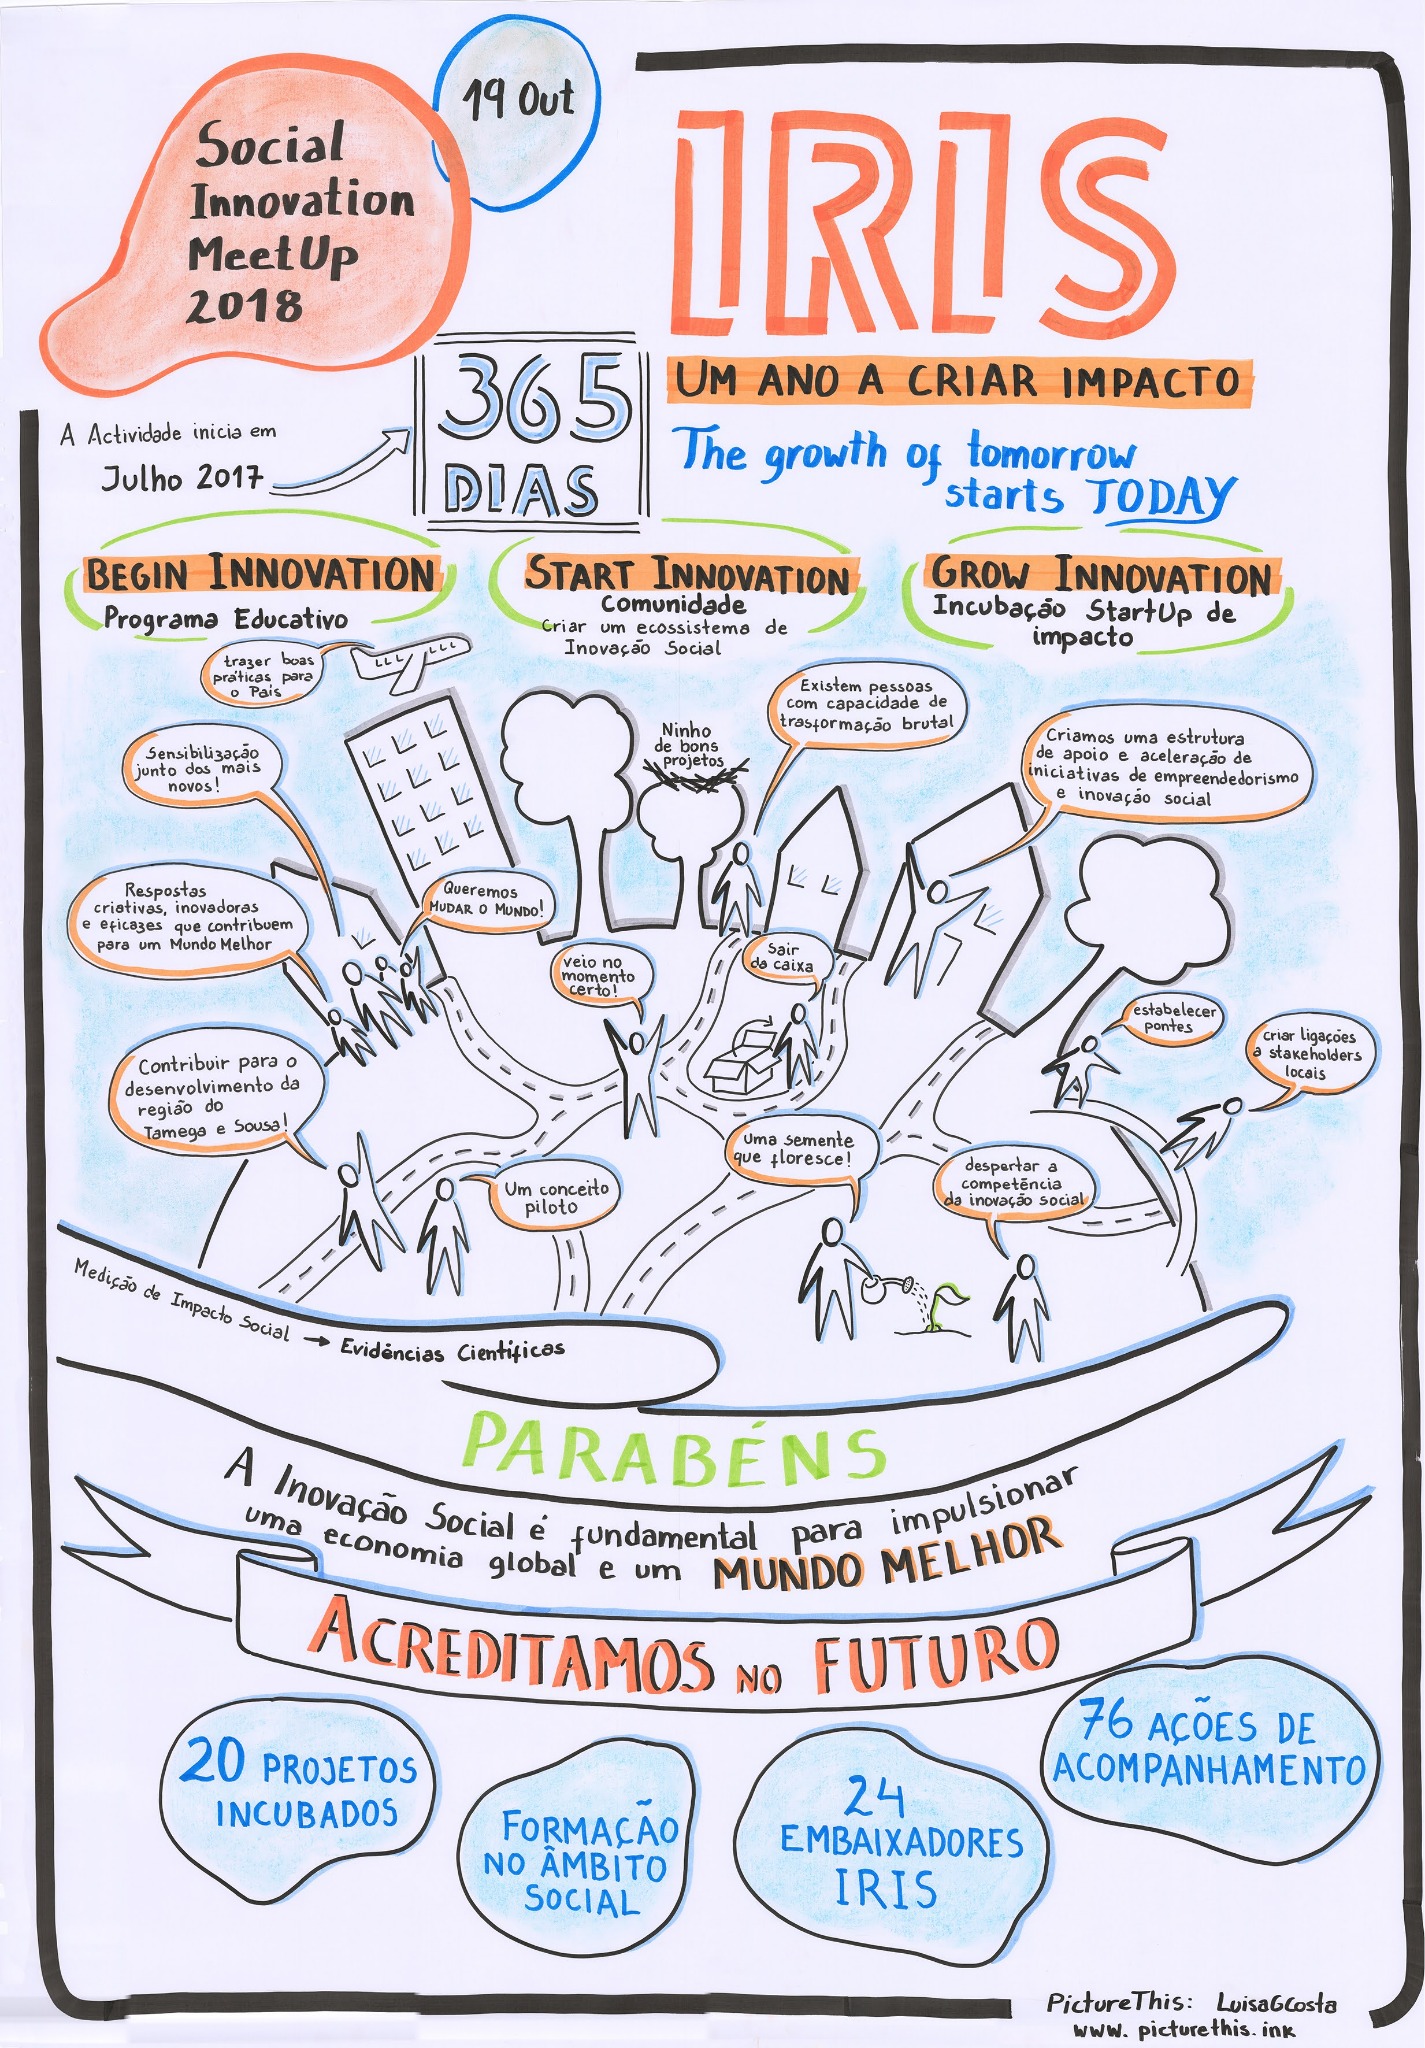 Social
Innovation
MeetUp
2018
19 Out
IRIS
UM ANO A CRIAR IMPACTO
The growth of tomorrow
starts TODAY
A Actividade inicia em
Julho 2017
365
DIAS
BEGIN INNOVATION
Programa Educativo
START INNOVATION
Comunidade
Criar um ecossistema de
Inovação Social
GROW INNOVATION
Incubação StartUp de
impacto
trazer boas
práticas para
o País
Sensibilização
junto dos mais
novos!
Respostas
criativas, inovadoras
e eficazes que contribuem
para um Mundo Melhor
Queremos
MUDAR O MUNDO!
Contribuir para o
desenvolvimento da
região do
Tamega e Sousa!
Um conceito
piloto
Ninho
de bons
projetos
Existem pessoas
com capacidade de
trasformação brutal
veio no
momento
certo!
Sair
da caixa
Criamos uma estrutura
de apoio e aceleração de
iniciativas de empreendedorismo
e inovação social
estabelecer
pontes
criar ligações
a stakeholders
locais
Uma semente
que floresce!
despertar a
competência
da inovação social
Medição de Impacto Social → Evidências Científicas
PARABÉNS
A Inovação Social é fundamental para impulsionar
uma economia global e um MUNDO MELHOR
ACREDITAMOS NO FUTURO
20 PROJETOS
INCUBADOS
FORMAÇÃO
NO ÂMBITO
SOCIAL
24
EMBAIXADORES
IRIS
76 AÇÕES DE
ACOMPANHAMENTO
PictureThis: LuisaGCosta
www.picturethis.ink